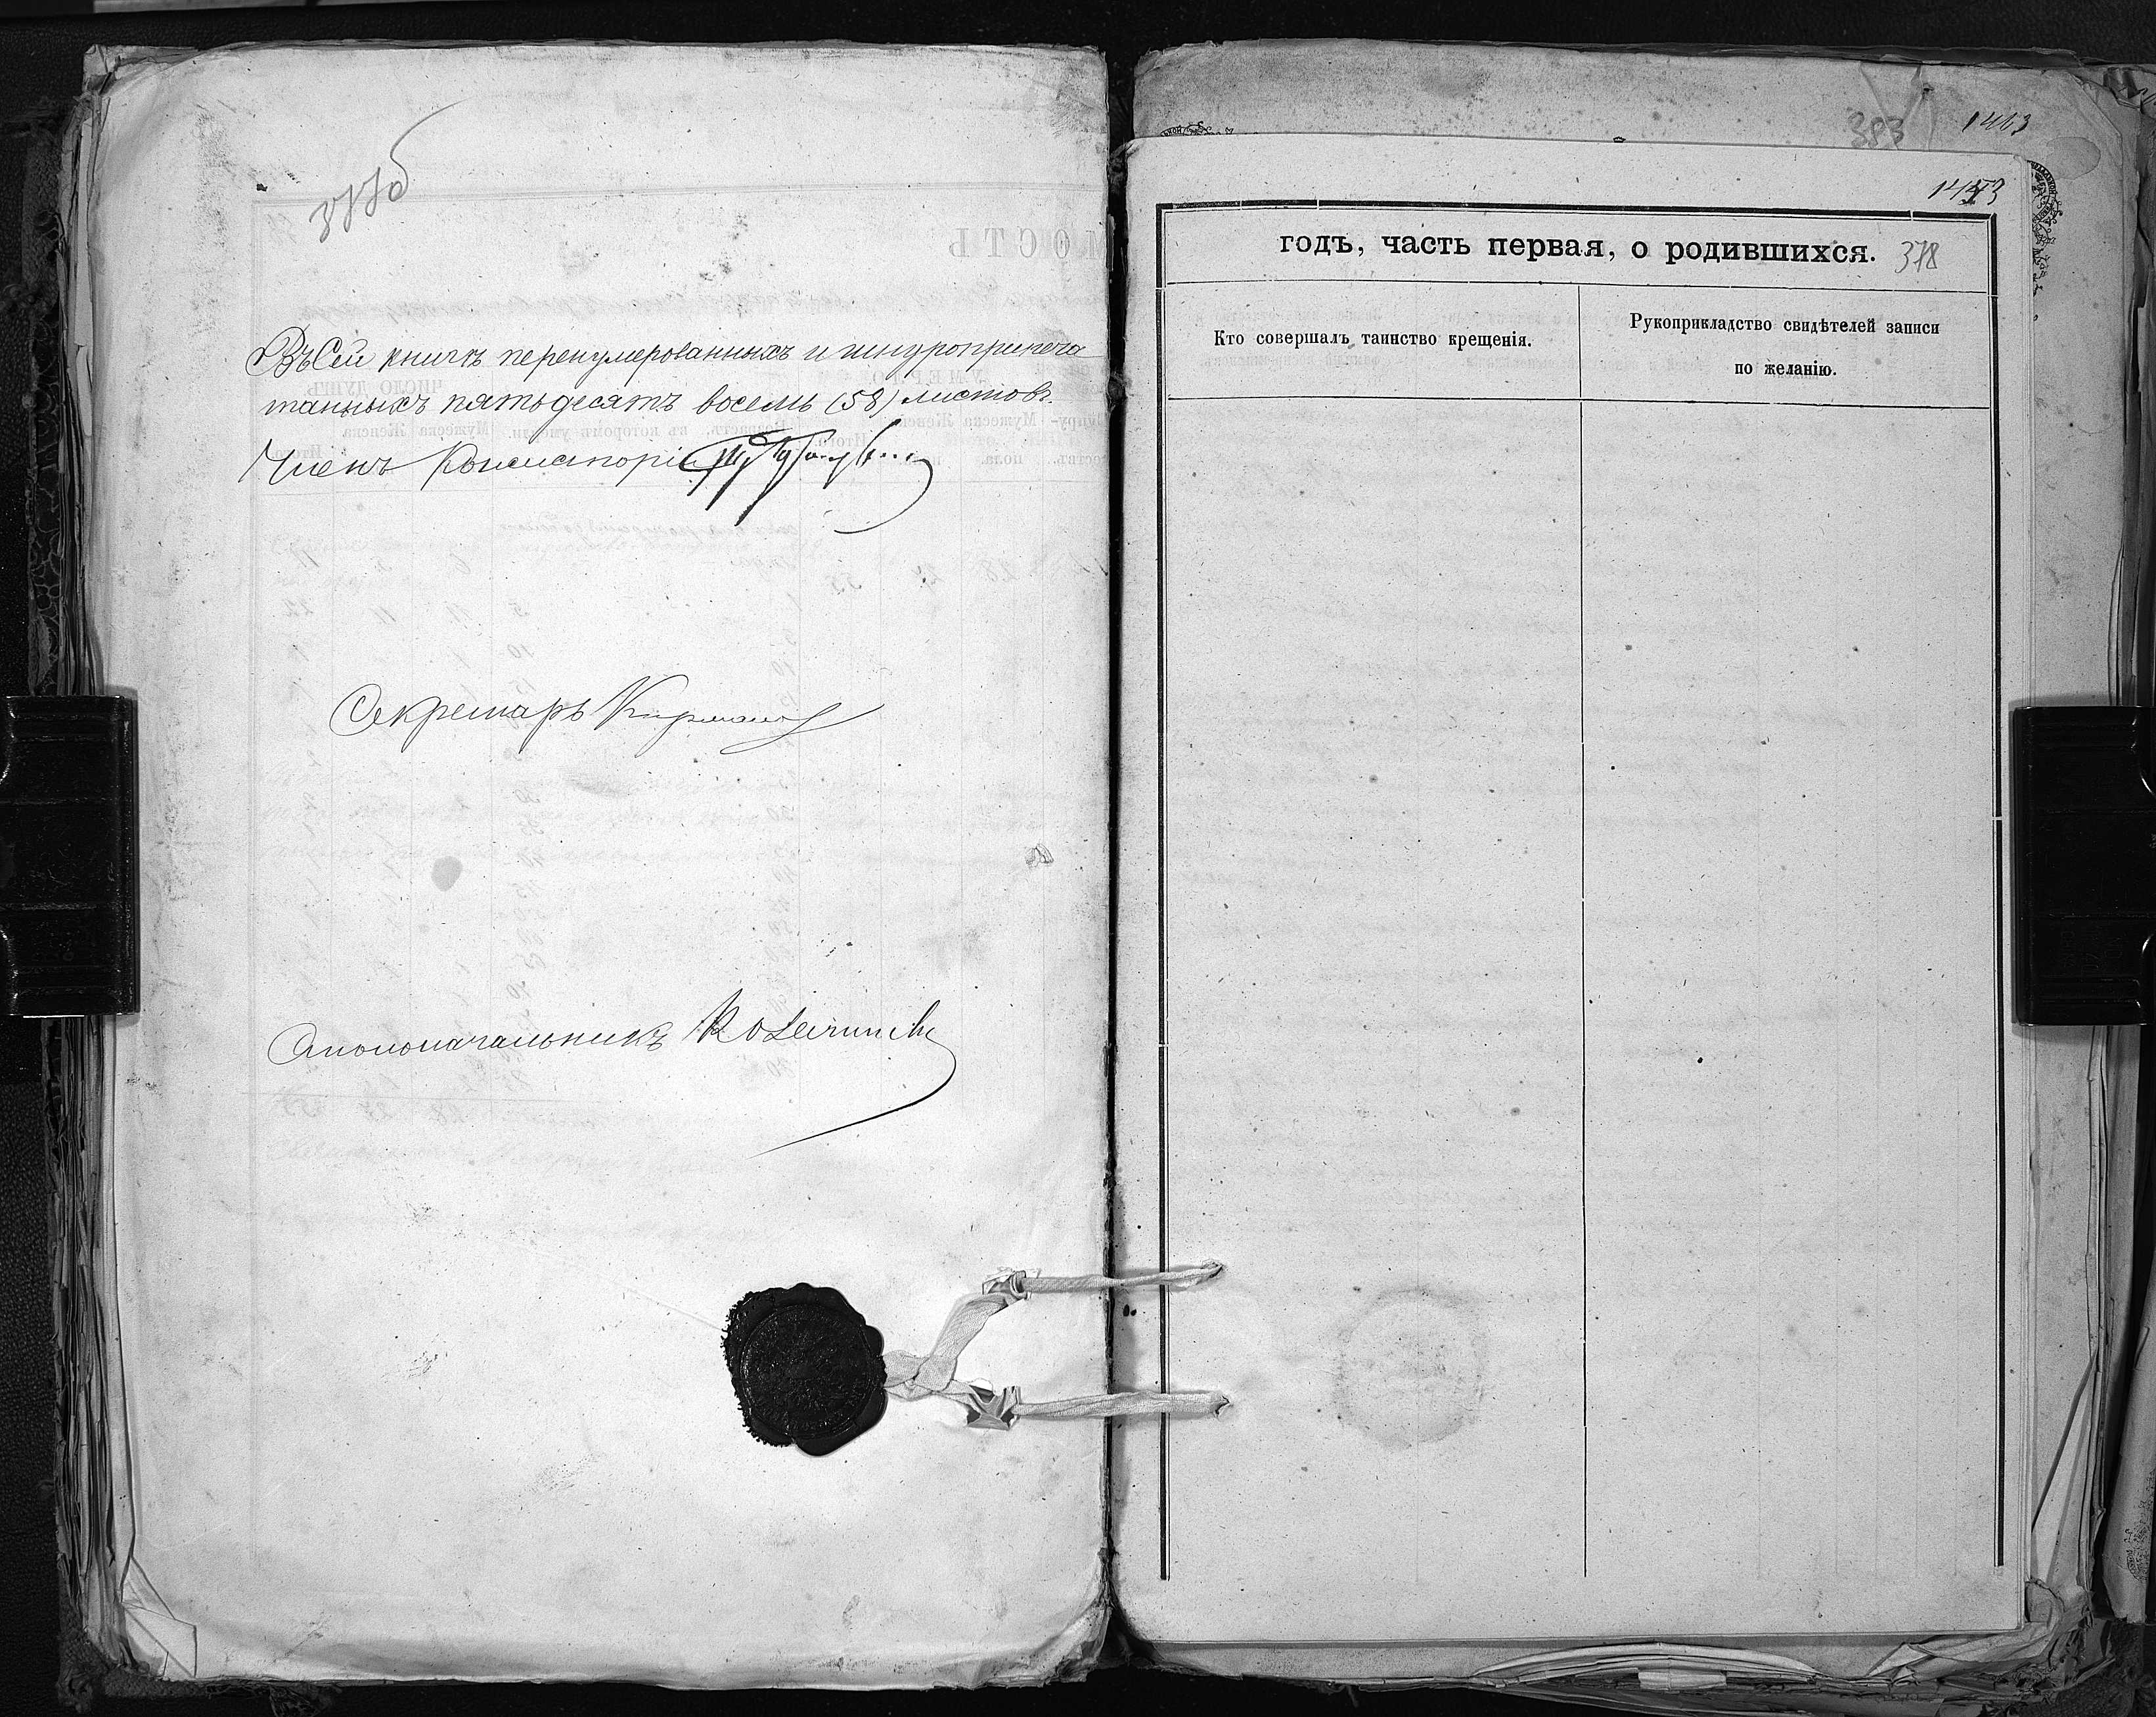 377об
Въ Сей книгѣ перенумерованныхъ и шнуроприпеча
танныхъ пятьдесятъ восемь (58) листовъ.
Членъ Консисторіи
Секретарь
Столоначальникъ
383
1463
1443
годъ, часть первая, о родившихся. 378
Кто совершалъ таинство крещенія.
Рукоприкладство свидѣтелей записи
по желанію.